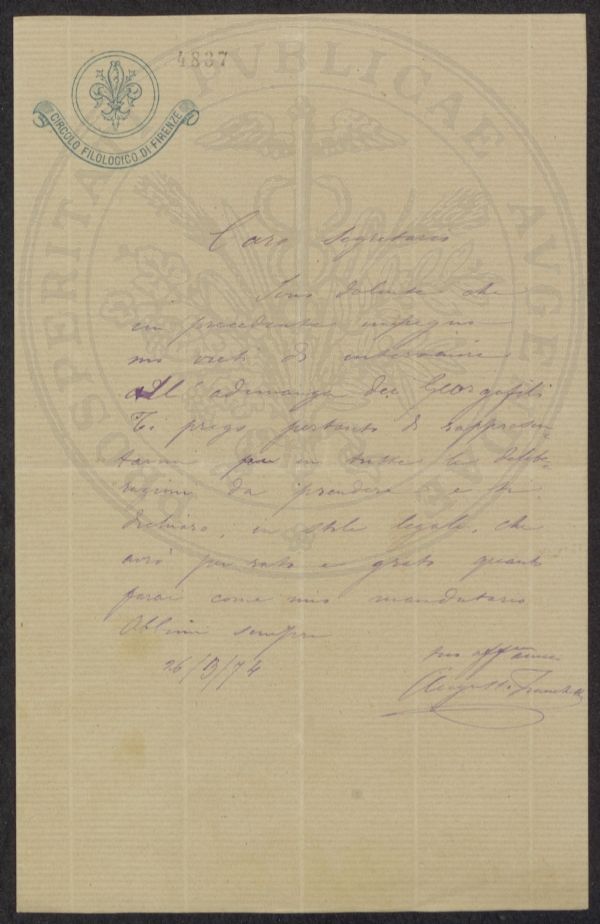 4837
CIRCOLO FILOLOGICO DI FIRENZE
PROSPERITATI PUBLICAE AVGENDAE
Caro Segretario
Sono dolente che
un precedente impegno
mi vieti di intervenire
all'adunanza dei Georgofili
Ti prego pertanto di rappresen-
tarmi in tutte le delibe-
razioni da prendere e ti
dichiaro, in stile legale, che
avrò per rato e grato quanto
farai come mio mandatario
sempre
tuo aff
26/3/74
Augusto Franchetti